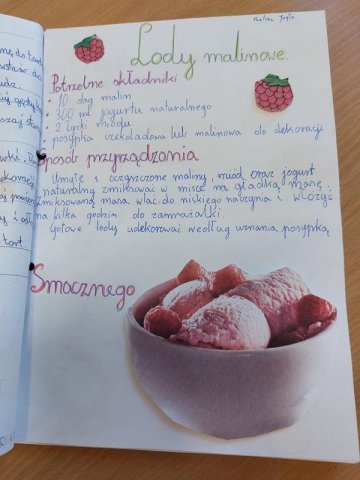 Lody malinowe.
Potrzebne składniki
• 10 dag malin
• 300 ml jogurtu naturalnego
• 2 łyżki miodu
• posypka czekoladowa lub malinowa do dekoracji
Sposób przyrządzania
Umyte i oczyszczone maliny, miód oraz jogurt
naturalny zmiksować w misce na gładką masę
zmiksowaną masą wlać do niskiego naczynia i włożyć
na kilka godzin do zamrażalki.
Gotowe lody udekorować według uznania posypką
Smacznego